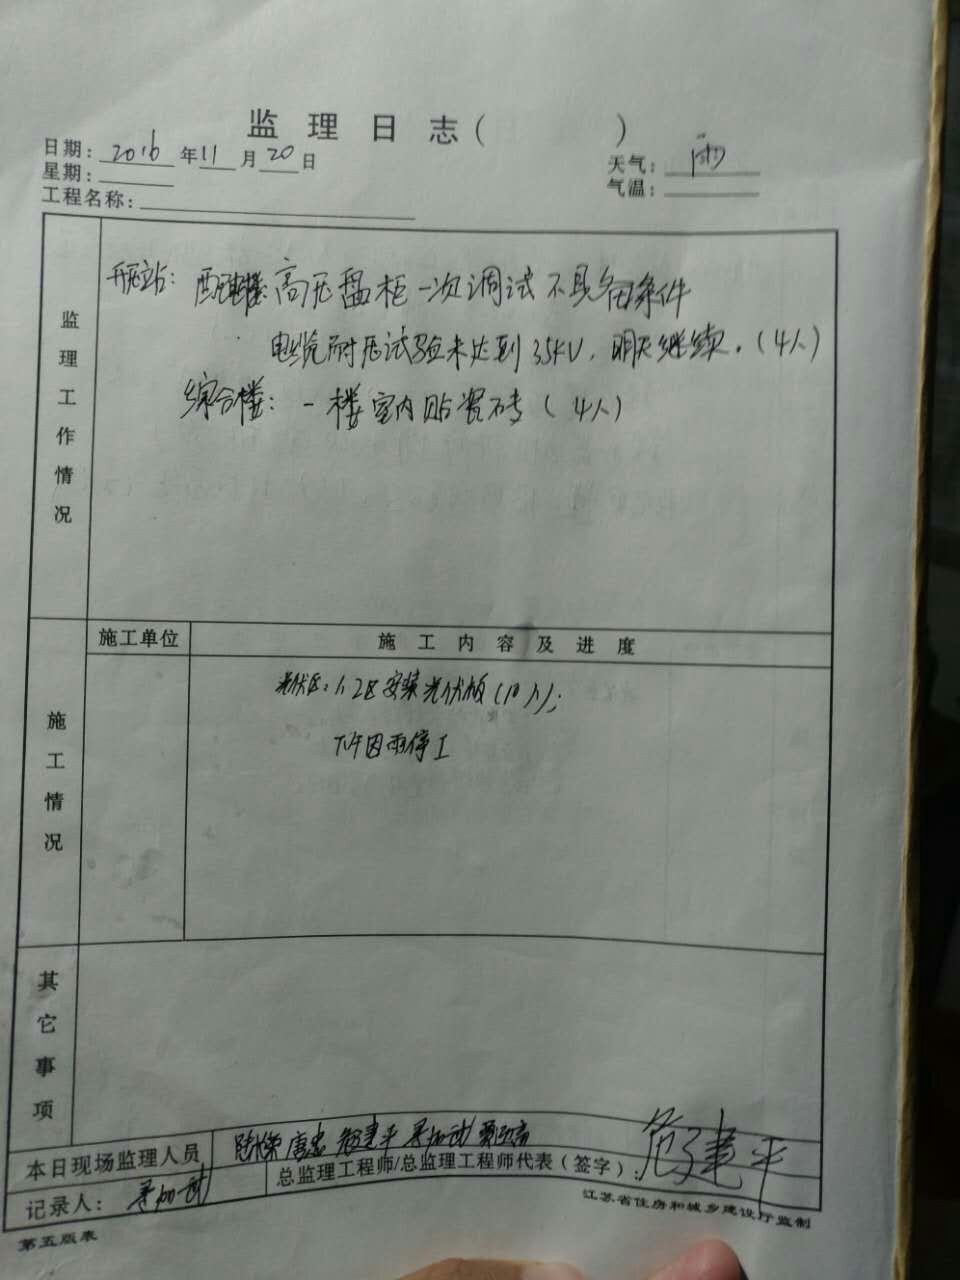 监理日志（ ）
日期：2016年11月20日 天气：雨
星期： 气温：
工程名称：
监理工作情况
开压站：配电楼高压盘柜一次调试不具备条件
电缆耐压试验未达到35KV，明天继续。（4人）
综合楼：一楼室内贴瓷砖（4人）
施工单位 施工内容及进度
施工情况
光伏区：1、2区安装光伏板（10人）；
下午因雨停工
其它事项
本日现场监理人员 唐忠 危建平
总监理工程师/总监理工程师代表（签字）：危建平
记录人：
江苏省住房和城乡建设厅监制
第五版表